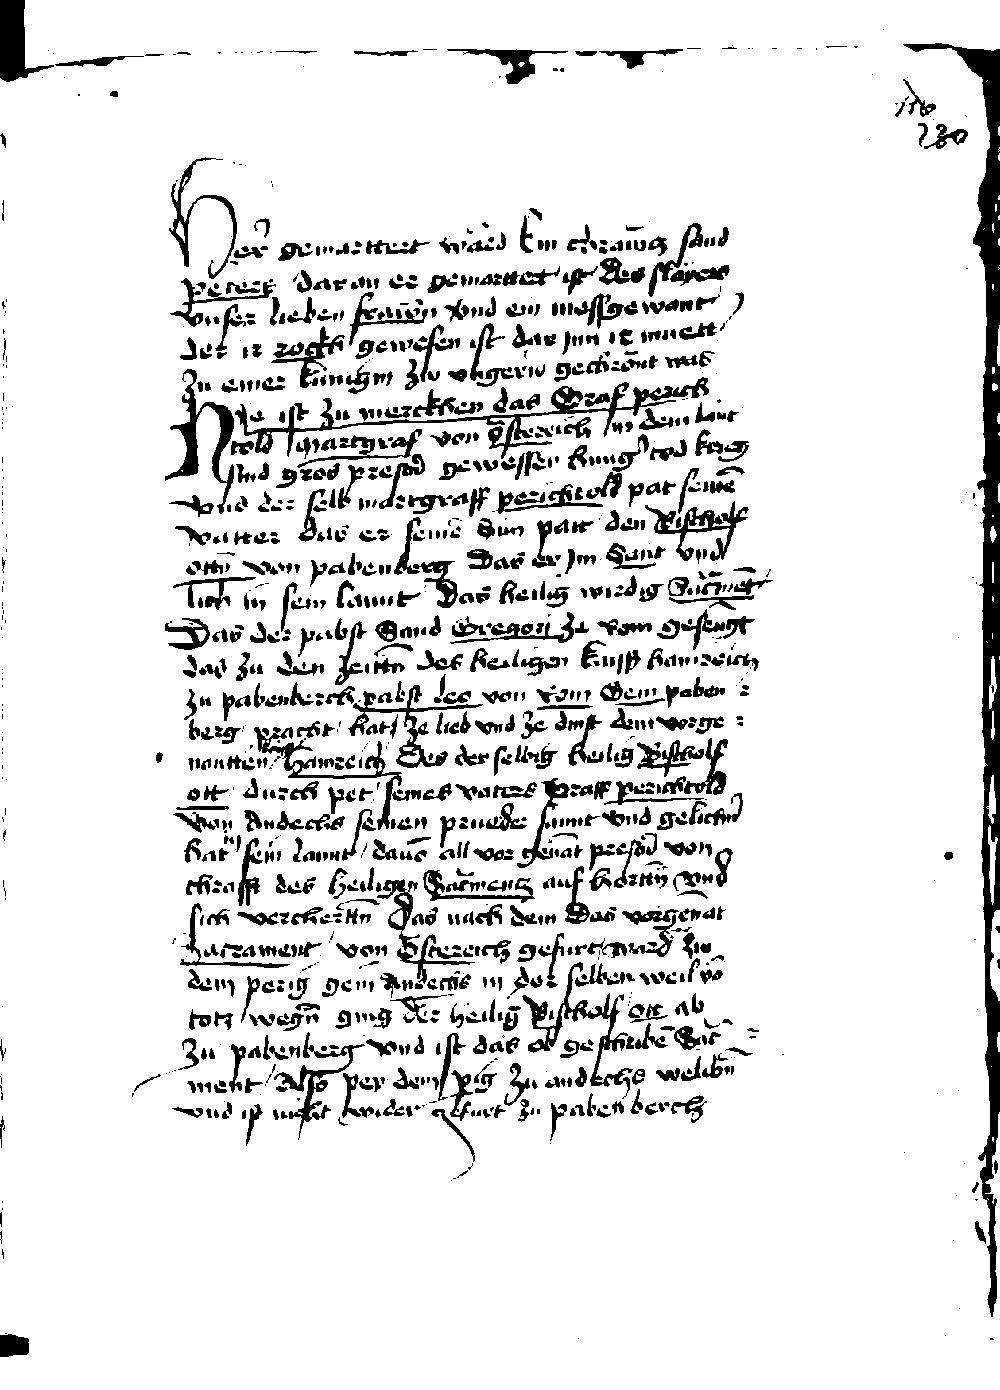 230
Her gemarttert ward Ein chrawcz sand
peters dar an er gemarttet ist Des slayers
vnser lieben frawn vnd ein messgewant
der ir rockh gewesen ist dar jnn ir muett
zu einer kunigin zw vngern gechront was
Hie ist zu merckhen das Graf perich
told Martgraf von Osterreich in dem lant
sind gros prestn gewesser hung tod krieg
vnd der selb martgraff perichtold pat seinen
vatter das er seine Sun patt den Bischolf
ottn von pabenberg Das er jm Sant vnd
lich in sein lannt Das heilig wirdig Sacment
Das der pabst Sand Gregori ze rom gesengt
das zu den zeittn des heiligen kaiss hainreich
zu pabenberch pabst leo von rom Gem paben
berg pracht hat ze lieb vnd ze dinst dem vorge
nantten kaiser Hainreich Des der selbig heilig Bischolf
ott durch pet seines vaters Graff perichtold
von Andechs seinen prueder sannt vnd gelichn
hat in sein lannt dauon all vor genant prestn von
chrafft des heiligen Sacmentz auf hortn vnd
sich verchertn Das nach dem Das vorgenat
Sacrament von Osterreich gefurt ward zu
dem perig gein Andechs in der selben weil von
totz wegn ging der heilig Bischolf ott ab
zu pabenberg vnd ist das ob geschriben Sac
ment Also pey dem pig zu andechs welibn
vnd ist nicht wider gefurt zu pabenberch